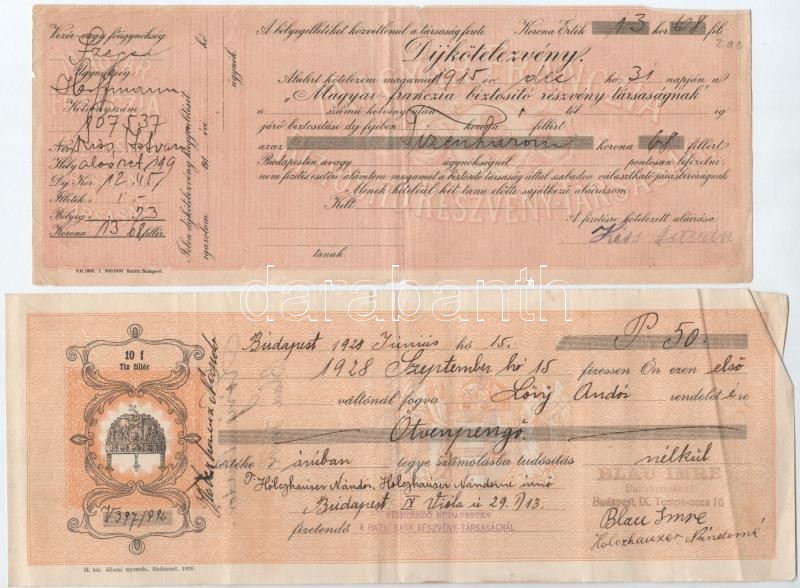 Vezér- vagy főügynökség:
Szeged
Ügynökség:
Hoffmann
Kötvényszám:
107537
Név Kiss István
Hely
Díj Kor. 12.45
Illeték " 1.-
Bélyeg " 23
Korona 13 68 fillér
Jelen díjkötelezvény
igazolom.
ügynök.
A bélyegilletéket közvetlenül a társaság fizeti. Korona Érték 13 kor. 68 fill.
Díjkötelezvény.
Alulírt kötelezem magamat 1915 év dec hó 31 napján a
"Magyar-franczia biztosító részvény-társaságnak"
a számú kötvény után től ig
járó biztosítási díj fejében korona fillért
azaz Tizenhárom korona 68 fillért
Budapesten, avagy ügynökségnél pontosan lefizetni,
nem fizetés esetére alávetem magamat a biztosító társaság által szabadon választható járásbíróságnak
Minek hiteléül két tanu előtt sajátkezű aláírásom
Kelt
A fizetésre kötelezett aláírása:
Kiss István
tanuk.
10 f
Tiz fillér
V397/992
Budapest 1928 Június hó 15. P 50.-
1928 Szeptember hó 15 fizessen Ön ezen első
váltónál fogva Lővj Andor rendeletére
Ötvenpengő.
értéke áruban tegye számolásba tudósítás nélkül
T. Holczhauser Nándor, Holczhauser Nándorné
Budapest IX Viola u 29. I/13.
fizetendő FIZETENDŐ BUDAPESTEN
A HAZAI BANK RÉSZVÉNY-TÁRSASÁGNÁL
BLAU IMRE
Butorkereskedő
Budapest, IX. Tompa-utca 16
Blau Imre
Holczhauser Nándorné
M. kir. állami nyomda. Budapest, 1928.
darabanth